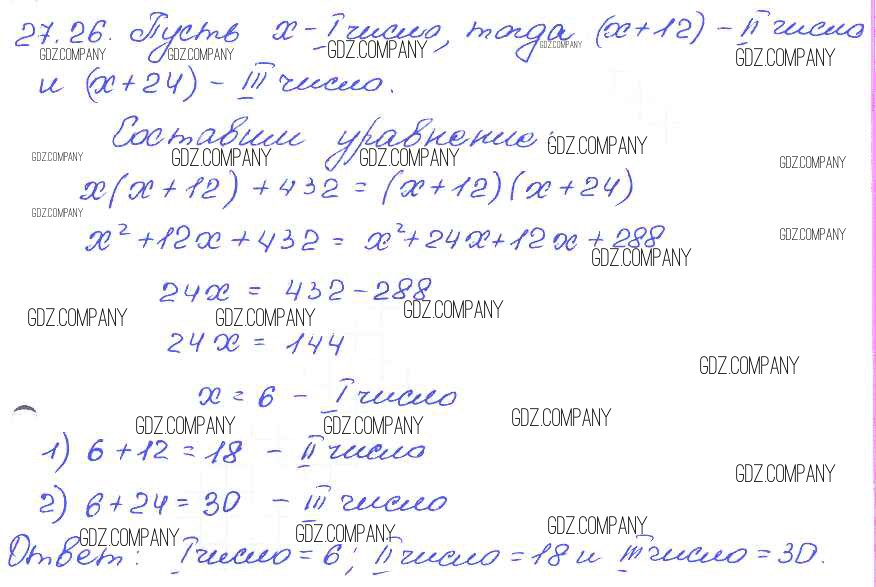 27.26. Пусть x - I число, тогда (x+12) - II число
GDZ.COMPANY GDZ.COMPANY GDZ.COMPANY GDZ.COMPANY GDZ.COMPANY
и (x+24) - III число.
Составим уравнение:
GDZ.COMPANY GDZ.COMPANY GDZ.COMPANY GDZ.COMPANY GDZ.COMPANY
x(x+12)+432=(x+12)(x+24)
GDZ.COMPANY
x²+12x+432= x²+24x+12x+288
GDZ.COMPANY GDZ.COMPANY
24x = 432-288
GDZ.COMPANY GDZ.COMPANY GDZ.COMPANY
24x = 144
GDZ.COMPANY
x = 6 - I число
GDZ.COMPANY GDZ.COMPANY GDZ.COMPANY
1) 6+12=18 - II число
GDZ.COMPANY
2) 6+24=30 - III число
GDZ.COMPANY GDZ.COMPANY GDZ.COMPANY
Ответ: I число=6; II число=18 и III число=30.